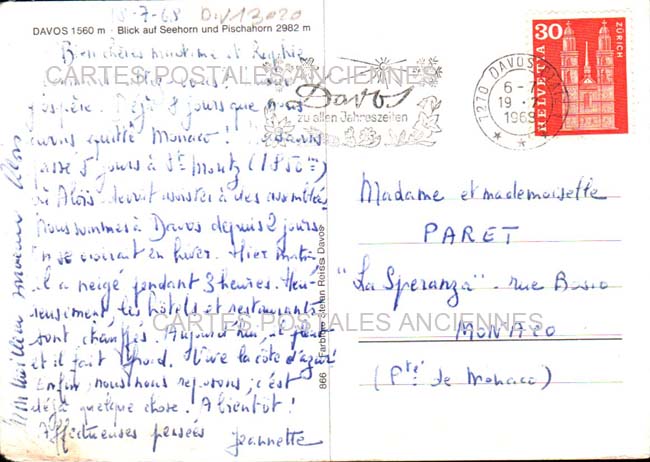 18-7-68 Div13020
DAVOS 1560 m - Blick auf Seehorn und Pischahorn 2982 m
Bien chères et Sophie
CARTES POSTALES ANCIENNES
comment allez vous ? bien
j'espère. Déjà 8 jours que nous
avons quitté Monaco. Nous avons
passé 5 jours à St Moritz (1850m)
où Aloïs devait assister à des assemblées
Nous sommes à Davos depuis 2 jours
On se croirait en hiver. Hier matin
il a neigé pendant 3 heures. Heu-
reusement, les hôtels et restaurants
sont chauffés. Aujourd'hui, il pleut
CARTES POSTALES ANCIENNES
et il fait froid. Vive la côte d'azur
Enfin, nous nous reposons, c'est
déjà quelque chose. A bientôt !
Affectueuses pensées Jeannette
Aloïs
866 Farbfoto Stefan Reiss Davos
Davos
zu allen Jahreszeiten
7270 DAVOS PLATZ 1
6-7
19.7.
1968
HELVETIA
30
ZÜRICH
Madame et mademoiselle
PARET
"La Speranza" - rue Bosio
MONACO
(Pté de Monaco)